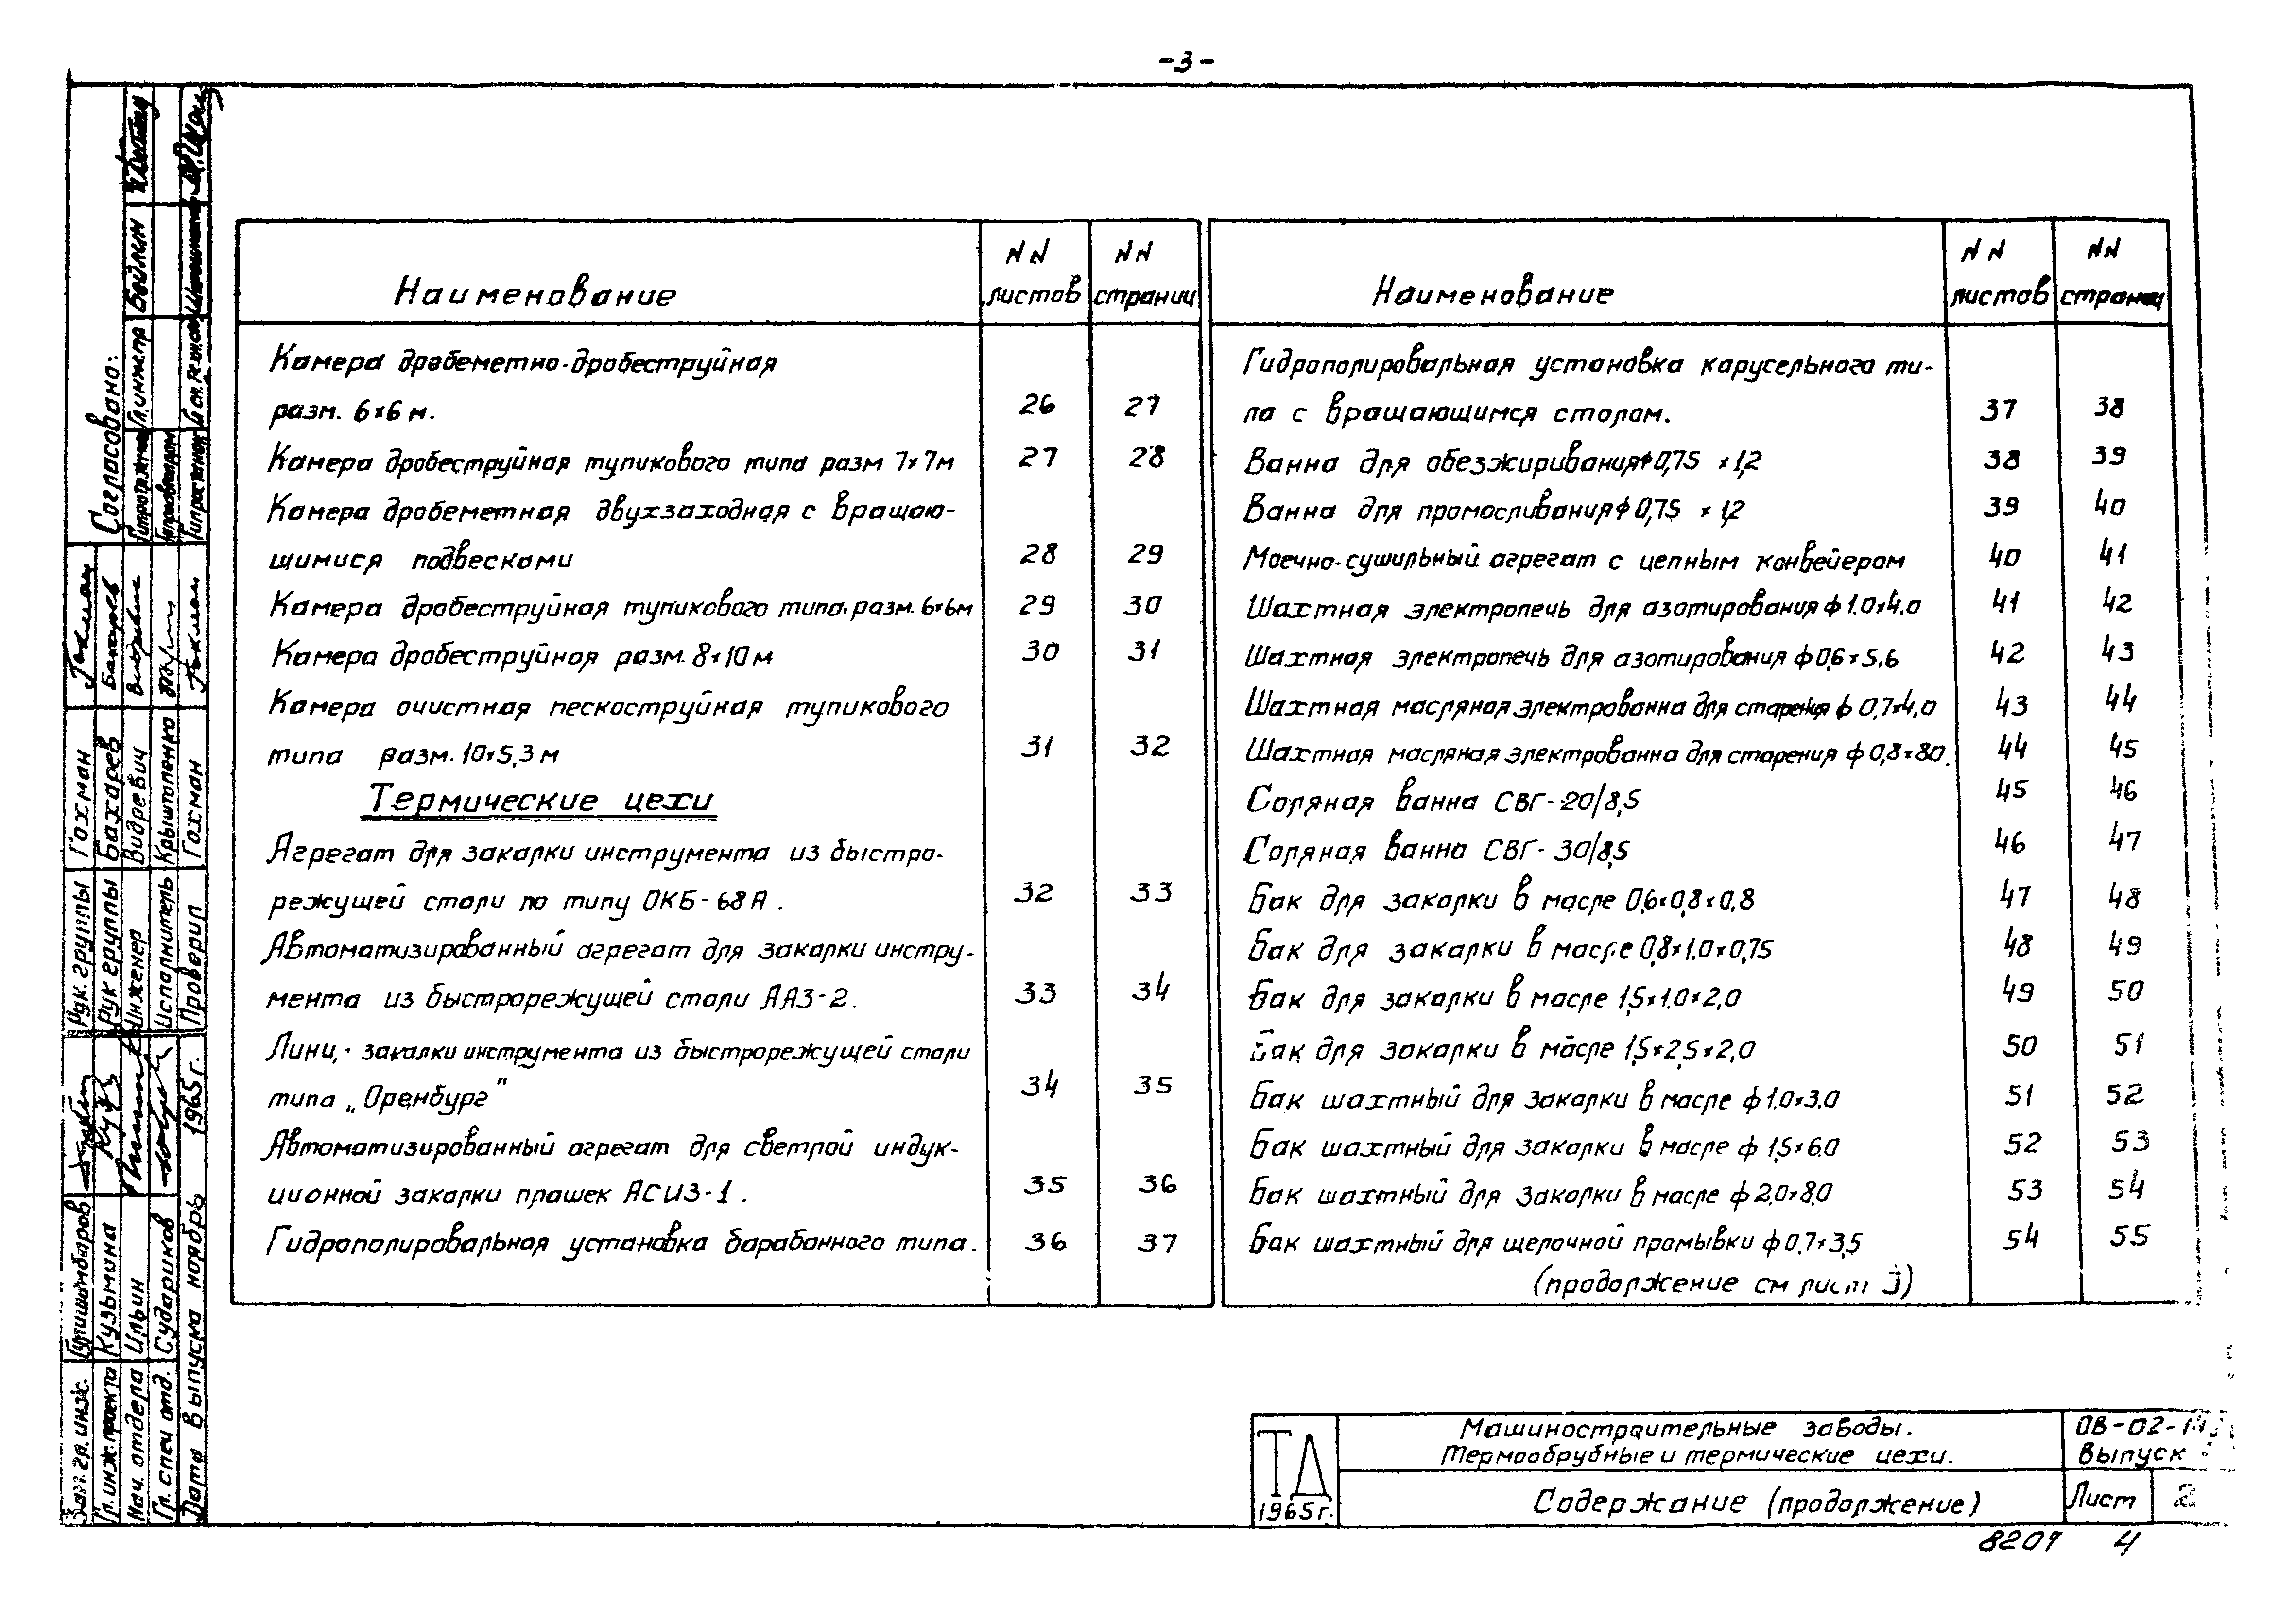 -3-
Наименование
NN листов
NN страниц
Камера дробеметно-дробеструйная
разм. 6×6 м. 26 27
Камера дробеструйная тупикового типа разм 7×7м 27 28
Камера дробеметная двухзаходная с вращаю-
щимися подвесками 28 29
Камера дробеструйная тупикового типа. разм. 6×6м 29 30
Камера дробеструйная разм. 8×10 м 30 31
Камера очистная пескоструйная тупикового
типа разм. 10×5,3 м 31 32
Термические цехи
Агрегат для закалки инструмента из быстро-
режущей стали по типу ОКБ-68А. 32 33
Автоматизированный агрегат для закалки инстру-
мента из быстрорежущей стали ААЗ-2. 33 34
закалки инструмента из быстрорежущей стали
типа „Оренбург" 34 35
Автоматизированный агрегат для светлой индук-
ционной закалки плашек АСИЗ-1. 35 36
Гидрополировальная установка барабанного типа. 36 37
Наименование
NN листов
NN страниц
Гидрополировальная установка карусельного ти-
па с вращающимся столом. 37 38
Ванна для обезжиривания ф 0,75 × 1,2 38 39
Ванна для промасливания ф 0,75 × 1,2 39 40
Моечно-сушильный агрегат с цепным конвейером 40 41
Шахтная электропечь для азотирования ф 1.0×4.0 41 42
Шахтная электропечь для азотирования ф 0,6×5.6 42 43
Шахтная масляная электрованна для старения ф 0,7×4,0 43 44
Шахтная масляная электрованна для старения ф 0,8×8.0. 44 45
Соляная ванна СВГ-20/8,5 45 46
Соляная ванна СВГ-30/8,5 46 47
Бак для закалки в масле 0,6×0,8×0.8 47 48
Бак для закалки в масле 0,8×1.0×0,75 48 49
Бак для закалки в масле 1,5×1.0×2,0 49 50
Бак для закалки в масле 1,5×2,5×2,0 50 51
Бак шахтный для закалки в масле ф 1.0×3.0 51 52
Бак шахтный для закалки в масле ф 1,5×6.0 52 53
Бак шахтный для закалки в масле ф 2,0×8,0 53 54
Бак шахтный для щелочной промывки ф 0,7×3,5 54 55
(продолжение см лист 3)
Согласовано:
Гл. инж. пр Бейлин
Рук. группы Гохман
Рук группы Бахарев
Инженер Видревич
Исполнитель Крыштопенко
Проверил Гохман
Зам. гл. инж.
Гл. инж. проекта Кузьмина
Нач. отдела Ильин
Гл. спец отд. Судариков
Дата выпуска ноябрь 1965 г.
ТД
1965 г.
Машиностроительные заводы.
Термообрубные и термические цехи.
Содержание (продолжение)
ОВ-02-
Выпуск
Лист 2
8209 4